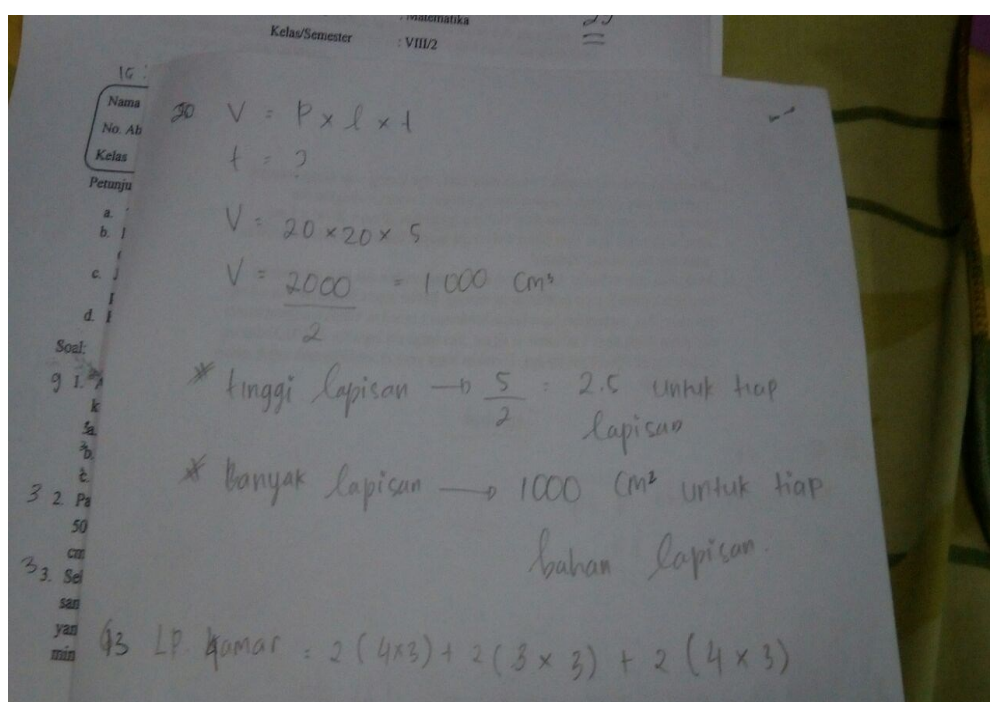 : Matematika
Kelas/Semester : VIII/2
Nama
No. Ab
Kelas
Petunju
a.
b.
c.
d.
Soal:
9 1.
k
a.
b.
c.
3 2. Pa
50
cm
3 3. Sel
san
yan
min
V = P x l x t
t = ?
V = 20 x 20 x 5
V = 2000 = 1000 cm³
2
* tinggi lapisan → 5 = 2.5 untuk tiap
2 lapisan
* Banyak lapisan → 1000 cm² untuk tiap
bahan lapisan.
LP kamar = 2 (4x3) + 2 (3 x 3) + 2 (4 x 3)